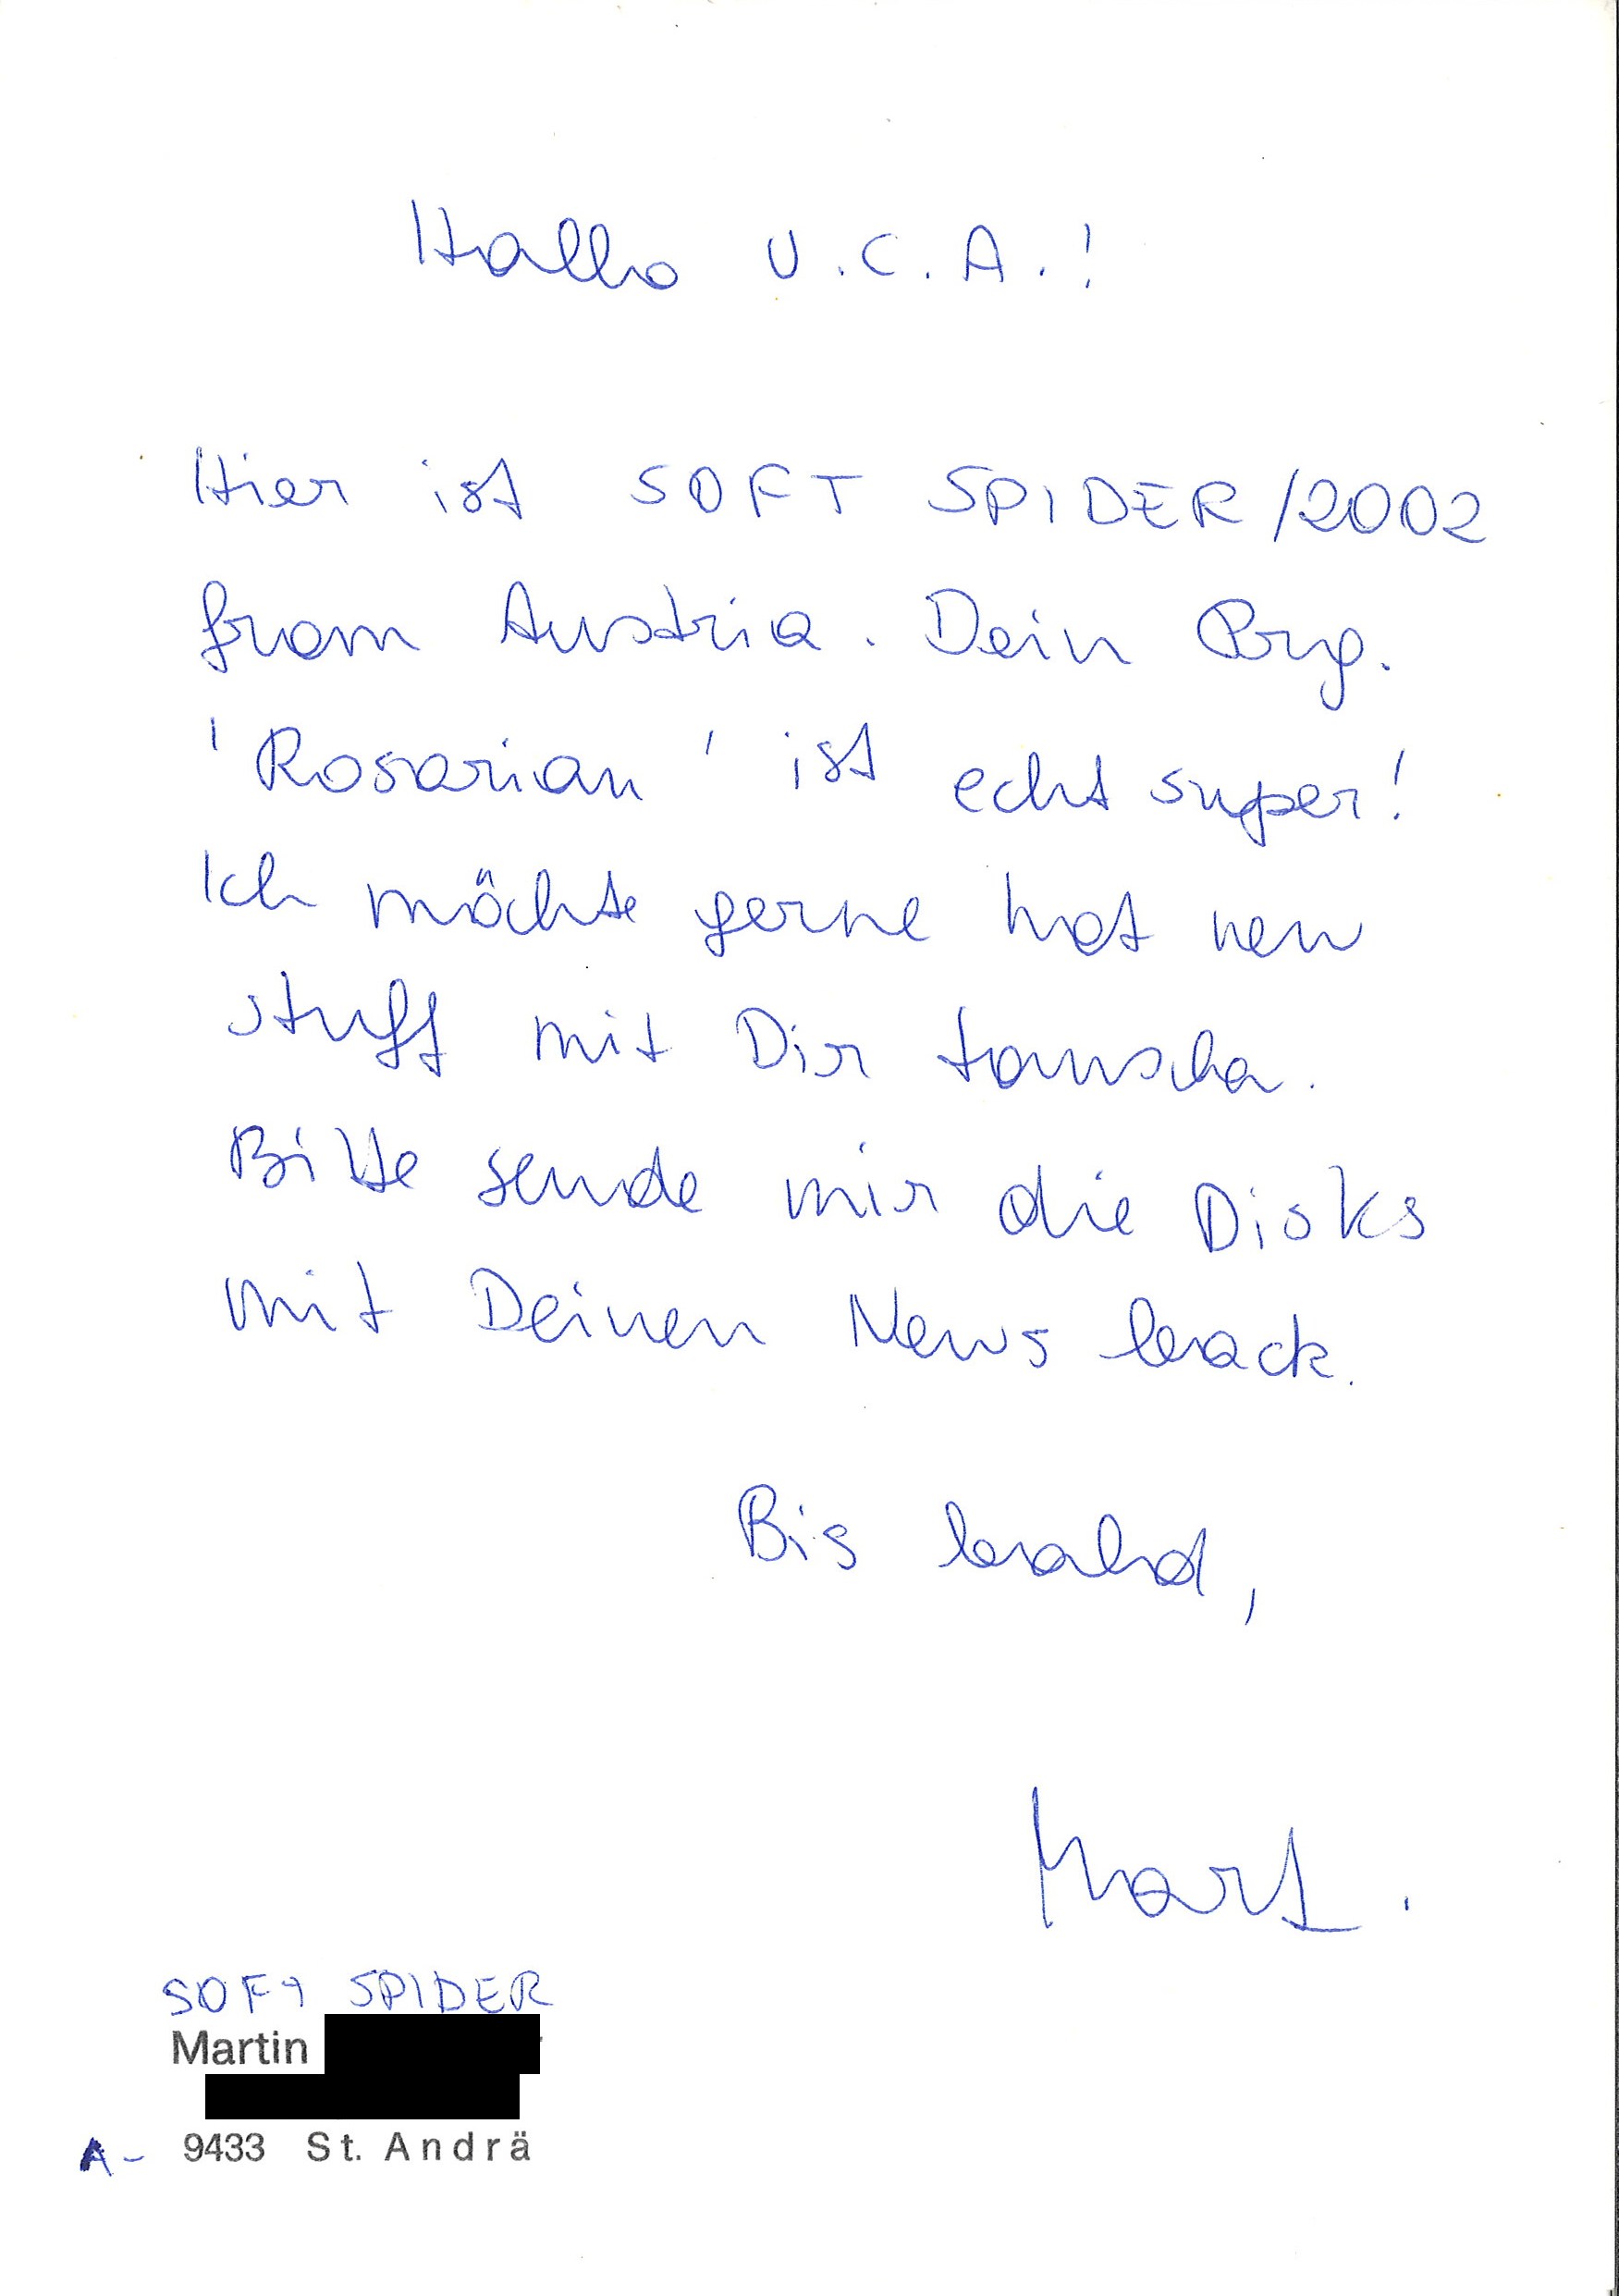 Hallo U.C.A.!
Hier ist SOFT SPIDER/2002
from Austria. Dein Prg.
'Rosarian' ist echt super!
Ich möchte gerne hot new
stuff mit Dir tauschen.
Bitte sende mir die Disks
mit Deinen News back.
Bis bald,
Mart.
SOFT SPIDER
Martin
A- 9433 St. Andrä